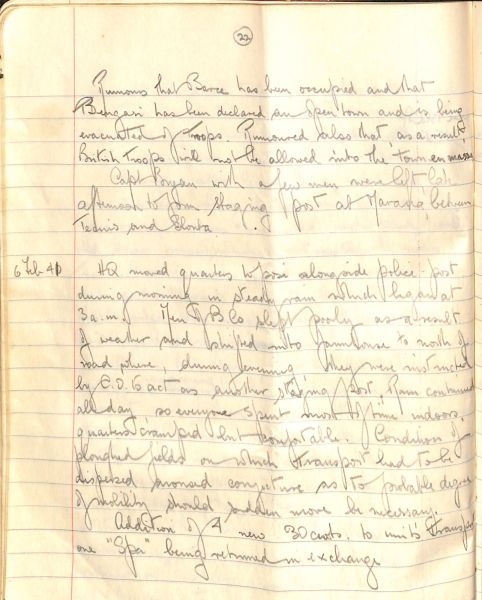 22
Rumours that Barce has been occupied and that
Bengasi has been declared an open town and is being
evacuated of Troops. Rumoured also that, as a result,
British Troops will not be allowed into the town en masse
Capt Bryan with a few men were left late
afternoon to form staging post at Maraua, between
Tecnis and Slonta.
6 Feb 41 HQ moved quarters to posn alongside police post
during morning in steady rain which began at
3 a.m. Men of B Co slept poorly as a result
of weather and shifted into farmhouse to north of
road where, during evening they were instructed
by C.O. to act as another staging post. Rain continued
all day, so everyone spent most of time indoors,
quarters cramped but comfortable. Condition of
ploughed fields on which transport had to be
dispersed aroused conjecture as to probable degree
of mobility should sudden move be necessary.
Addition of 4 new 30 cwts. to unit's transport
one "Spa" being returned in exchange